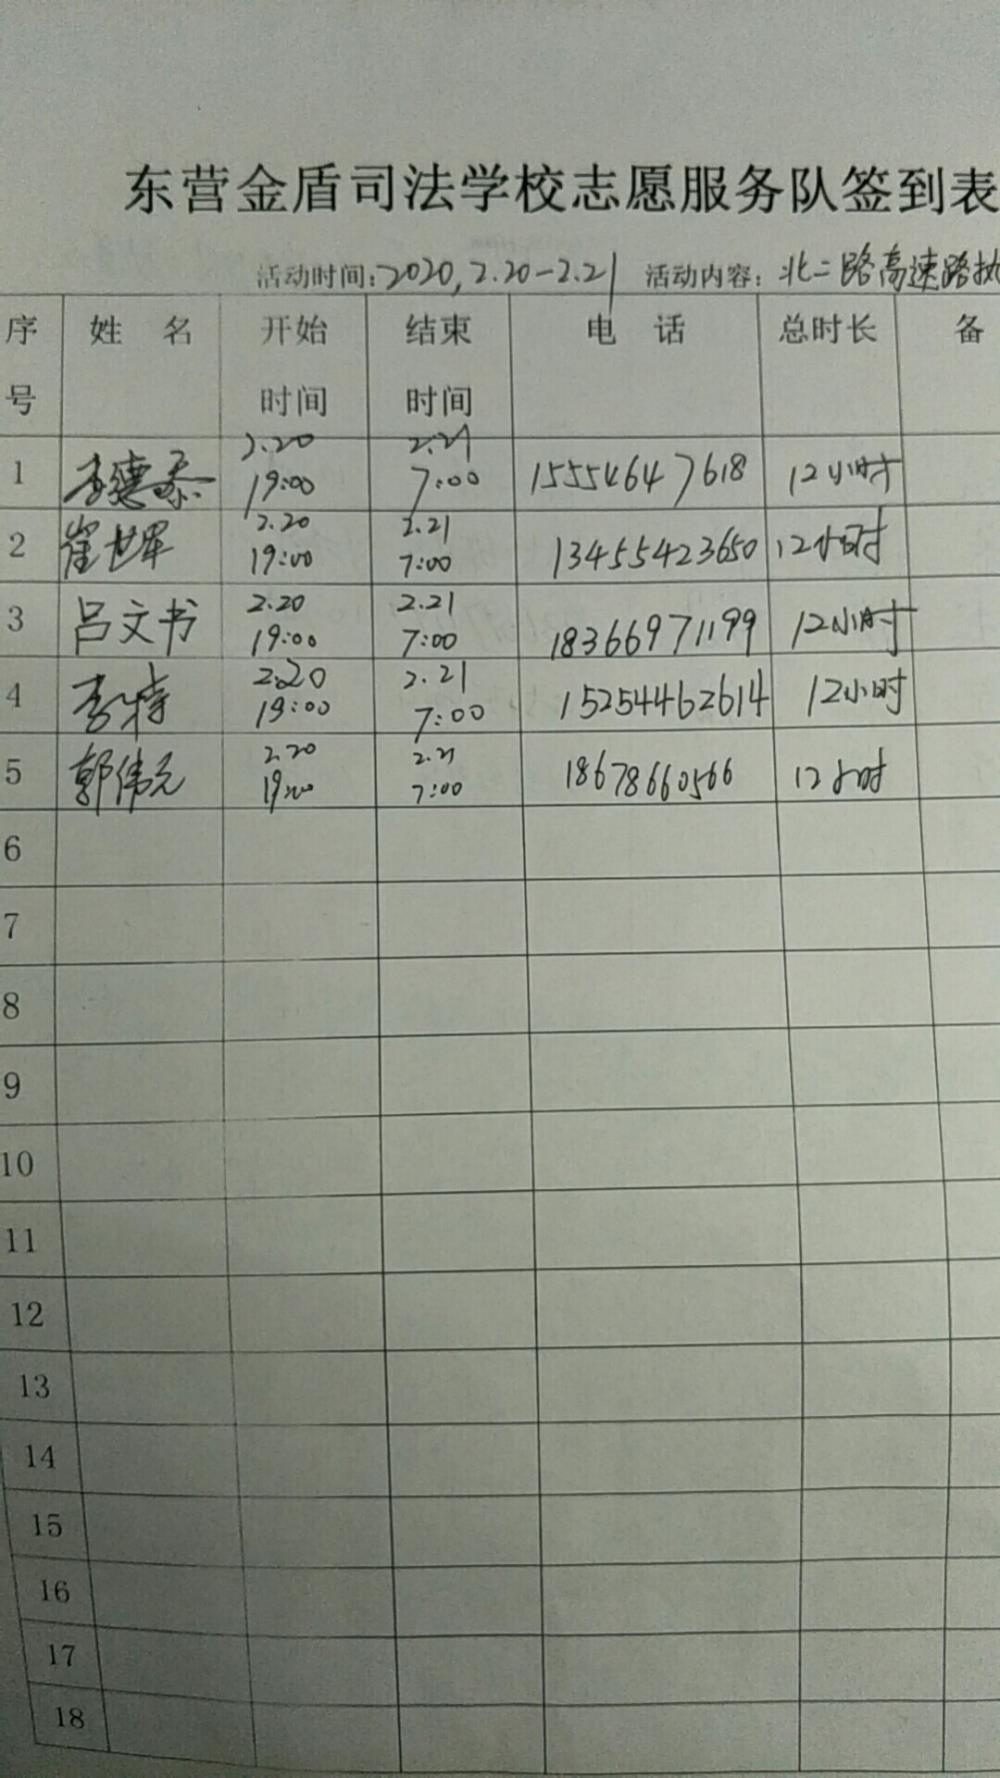 东营金盾司法学校志愿服务队签到表
活动时间：2020，2.20-2.21 活动内容：北二路高速路执
序号 姓 名 开始时间 结束时间 电 话 总时长 备
1 李德泰 2.20 19:00 2.21 7:00 15554647618 12小时
2 崔世军 2.20 19:00 2.21 7:00 13455423650 12小时
3 吕文书 2.20 19:00 2.21 7:00 18366971199 12小时
4 李特 2.20 19:00 2.21 7:00 15254462614 12小时
5 郭伟元 2.20 19:00 2.21 7:00 18678660566 12小时
6
7
8
9
10
11
12
13
14
15
16
17
18